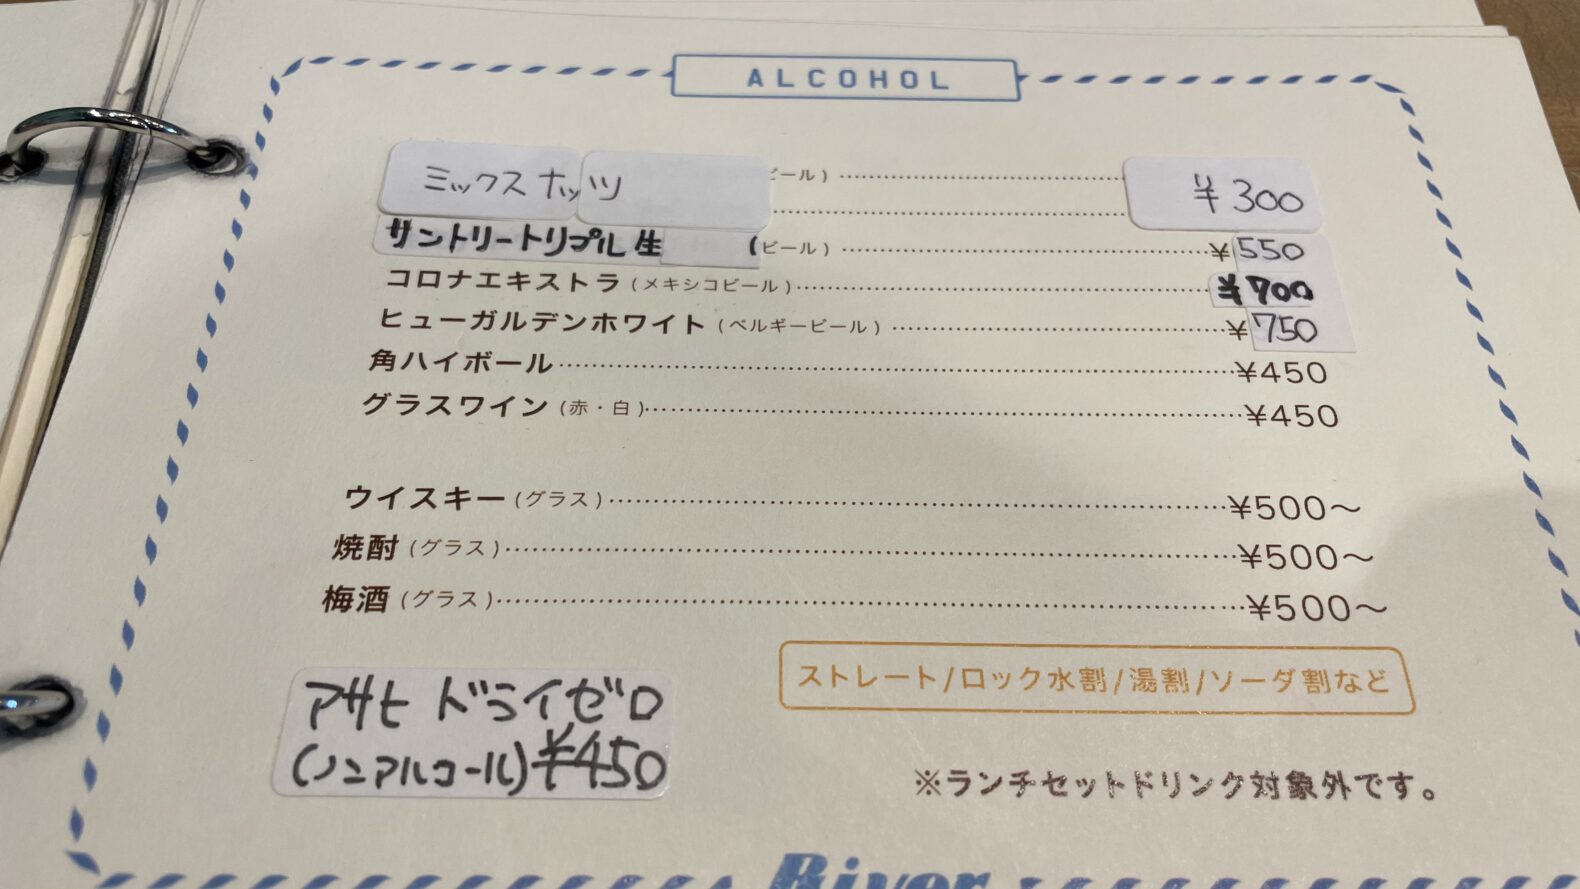 ALCOHOL
ミックスナッツ ビール) ¥300
サントリートリプル生 (ビール) ¥550
コロナエキストラ (メキシコビール) ¥700
ヒューガルデンホワイト (ベルギービール) ¥750
角ハイボール ¥450
グラスワイン (赤・白) ¥450
ウイスキー (グラス) ¥500〜
焼酎 (グラス) ¥500〜
梅酒 (グラス) ¥500〜
ストレート/ロック水割/湯割/ソーダ割など
アサヒ ドライゼロ
(ノンアルコール) ¥450
※ランチセットドリンク対象外です。
River